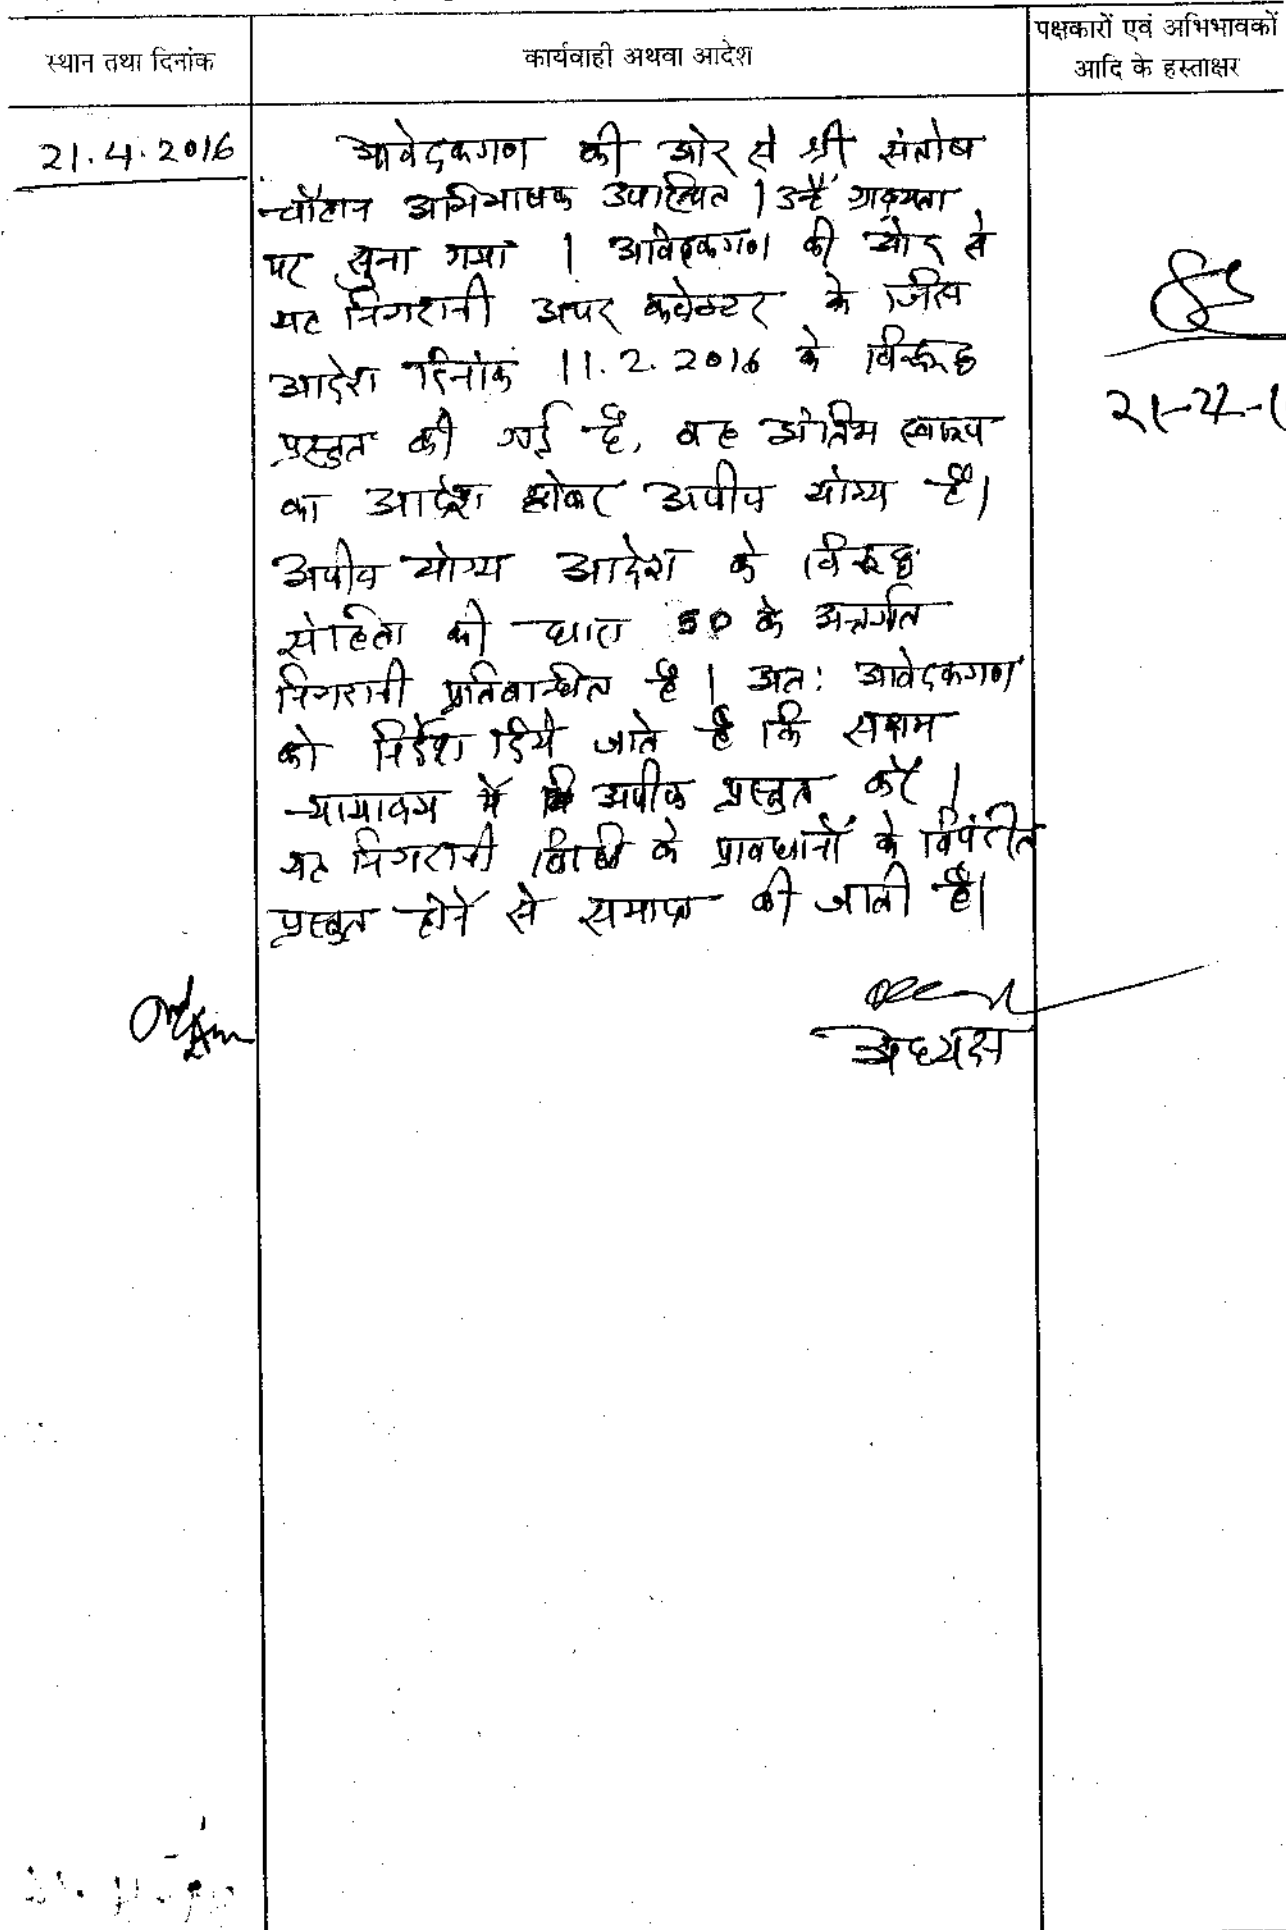 स्थान तथा दिनांक
कार्यवाही अथवा आदेश
पक्षकारों एवं अभिभावकों
आदि के हस्ताक्षर
21.4.2016
आवेदकगण की ओर से श्री संतोष
चौहान अभिभाषक उपस्थित । उन्हें ग्राह्यता
पर सुना गया । आवेदकगण की ओर से
यह निगरानी अपर कलेक्टर के जिस
आदेश दिनांक 11.2.2016 के विरूद्ध
प्रस्तुत की गई है, वह अंतिम स्वरूप
का आदेश होकर अपील योग्य है।
अपील योग्य आदेश के विरूद्ध
संहिता की धारा 50 के अन्तर्गत
निगरानी प्रतिबन्धित है । अतः आवेदकगण
को निर्देश दिये जाते है कि सक्षम
न्यायालय में अपील प्रस्तुत करें ।
यह निगरानी विधि के प्रावधानों के विपरीत
प्रस्तुत होने से समाप्त की जाती है।
अध्यक्ष